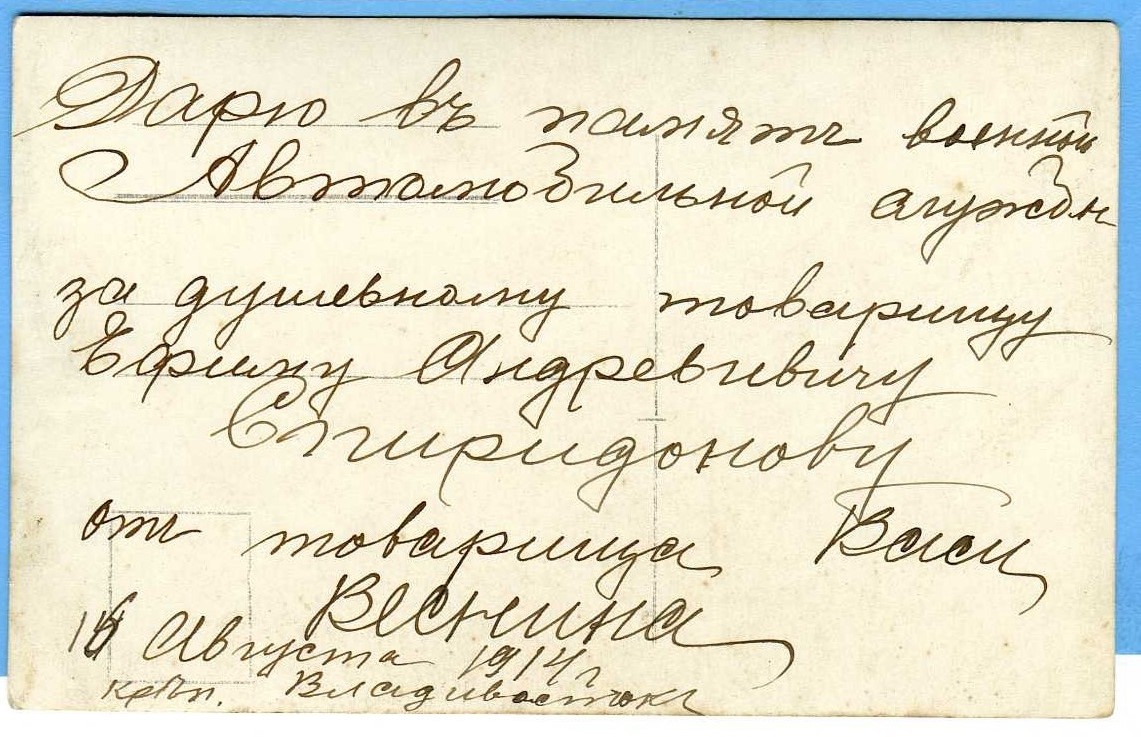 Дарю въ память военной
Автомобильной службы
за душевному товарищу
Ефиму Андреевичу
Спиридонову
отъ товарища Васи
Веснина
Августа 1914 г
крѣп. Владивостокъ